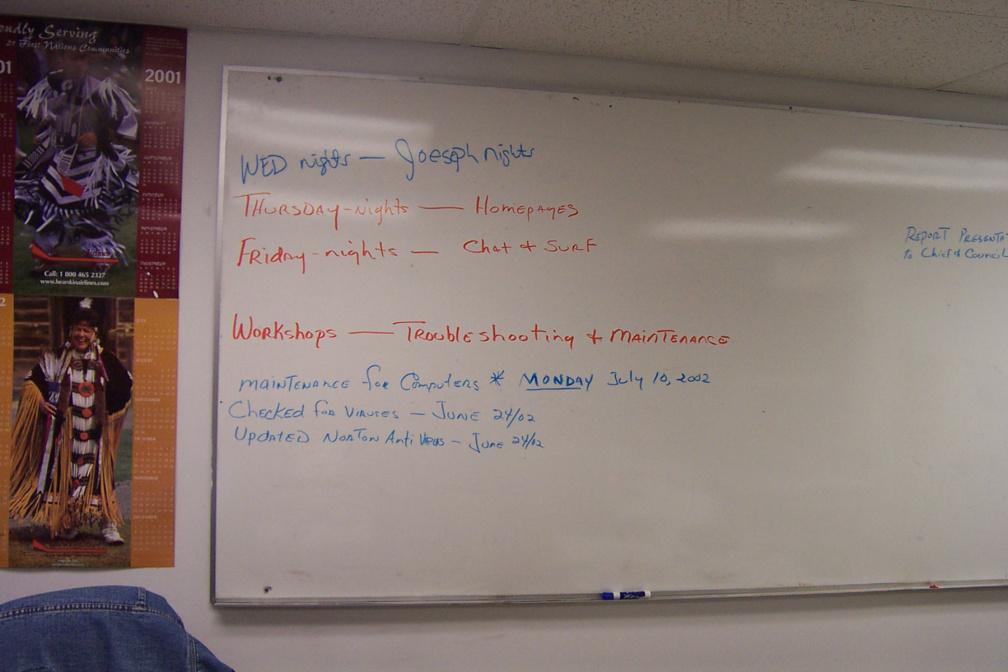 Proudly Serving
First Nations Communities
01
2001
Call: 1 800 465 2327
www.bearskinairlines.com
2
WED nights — Joesph nights
THURSDAY-nights — HOMEPAGES
Friday-nights — Chat & SURF
WORKSHOPS — TROUBLEshooting & MAINTENANCE
MAINTENANCE for Computers * MONDAY July 10, 2002
Checked for VIRUSES — JUNE 24/02
UPDATED NORTON Anti Virus — JUNE 24/02
REPORT PRESENTA
to Chief & Council